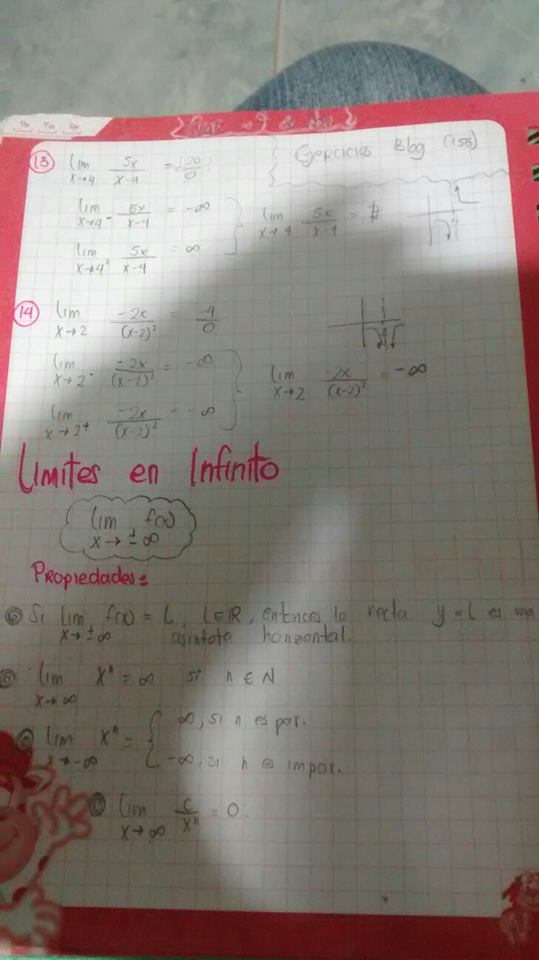 Ejercicios Blog (155)
13 lim x→4 5x/x-4 = ¿20/0?
lim x→4⁻ 5x/x-4 = -∞
lim x→4 5x/x-4 = ∄
lim x→4⁺ 5x/x-4 = ∞
14 lim x→2 -2x/(x-2)² = -4/0
lim x→2⁻ -2x/(x-2)² = -∞
lim x→2 -2x/(x-2)² = -∞
lim x→2⁺ -2x/(x-2)² = -∞
Limites en Infinito
lim x→±∞ f(x)
Propiedades:
Si lim x→±∞ f(x) = L, L∈ℝ, entonces la recta y=L es una
asintota horizontal.
lim x→∞ xⁿ = ∞ si n ∈ N
lim x→-∞ xⁿ = { ∞, si n es par.
-∞, si n es impar.
lim x→∞ c/xⁿ = 0